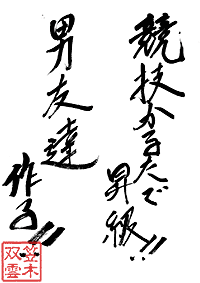 競技かるたで
昇級!!
男友達
作る!!
笠木
双雲